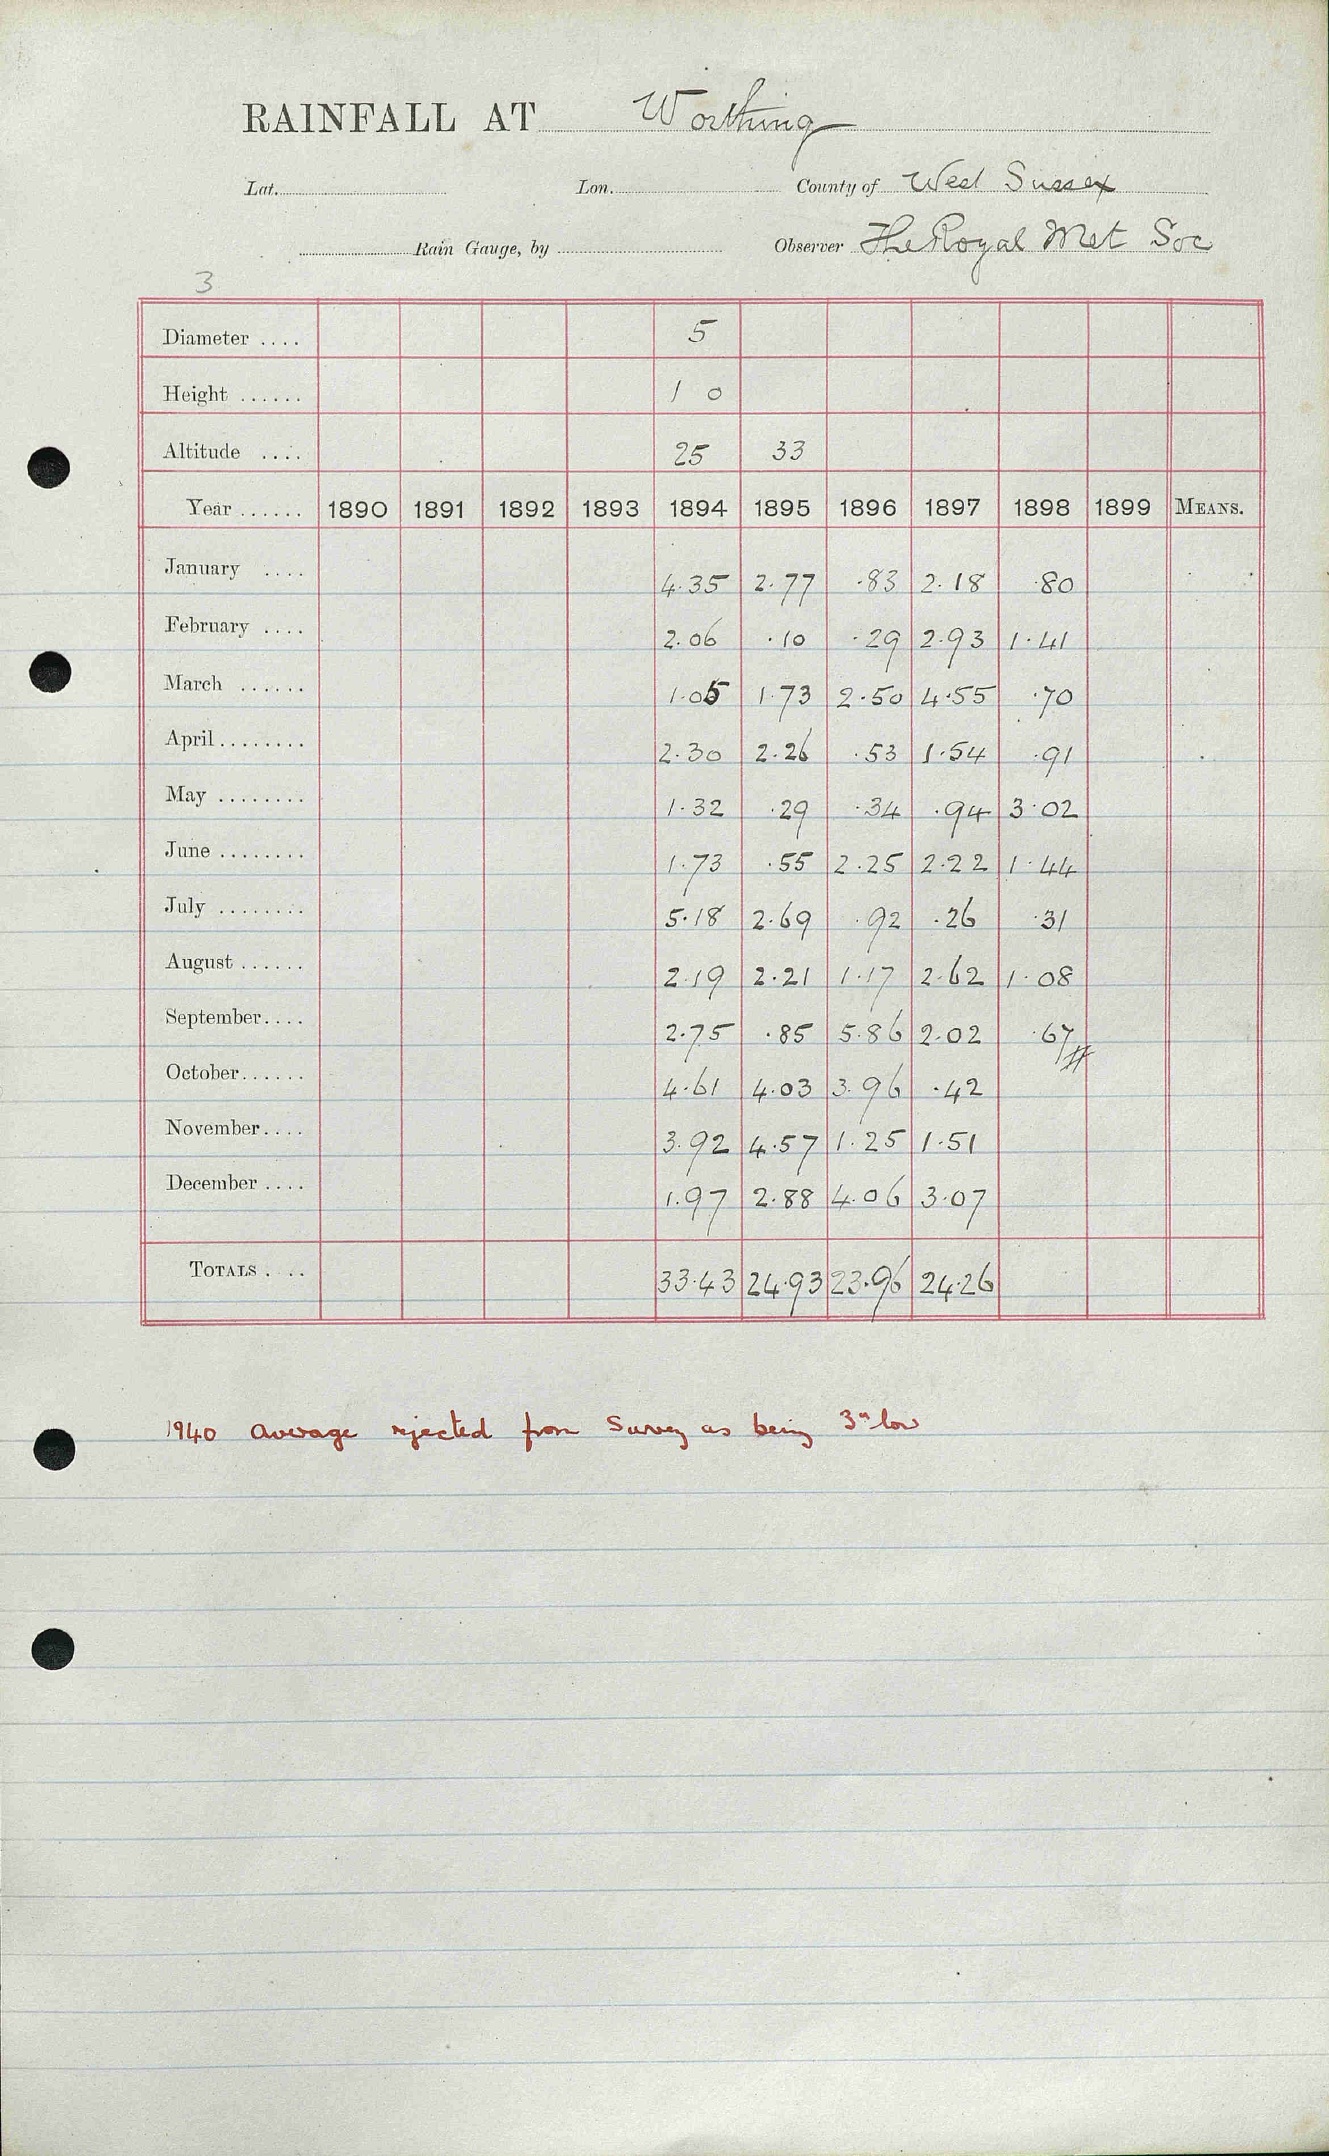 RAINFALL AT Worthing
Lat. Lon. County of West Sussex
Rain Gauge, by Observer The Royal Met Soc
3
Diameter .... 5
Height ...... 1 0
Altitude .... 25 33
Year ...... 1890 1891 1892 1893 1894 1895 1896 1897 1898 1899 MEANS.
January .... 4.35 2.77 .83 2.18 .80
February .... 2.06 .10 .29 2.93 1.41
March ...... 1.05 1.73 2.50 4.55 .70
April........ 2.30 2.26 .53 1.54 .91
May ........ 1.32 .29 .34 .94 3.02
June ........ 1.73 .55 2.25 2.22 1.44
July ........ 5.18 2.69 .92 .26 .31
August ...... 2.19 2.21 1.17 2.62 1.08
September.... 2.75 .85 5.86 2.02 .67
October...... 4.61 4.03 3.96 .42
November.... 3.92 4.57 1.25 1.51
December .... 1.97 2.88 4.06 3.07
TOTALS .... 33.43 24.93 23.96 24.26
1940 average rejected from Survey as being 3" low